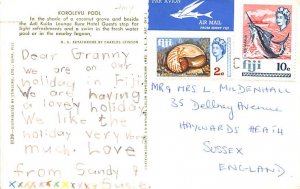 KOROLEVU POOL
In the shade of a coconut grove and beside the deft Korolevu Hotel Guests stop for light refreshments and a swim in the fresh water pool or in the nearby lagoon.
PAR AVION
AIR MAIL
FIJI
2c
fiji
10c
Dear Granny
We are on
holiday in Fiji
We are having
a lovey holiday
We like the
holiday very
much. Love
from Sandy &
Susie.
MR & MRS L. McDENHALL
35 Dellney Avenue
HAYWARDS HEATH
SUSSEX
ENGLAND